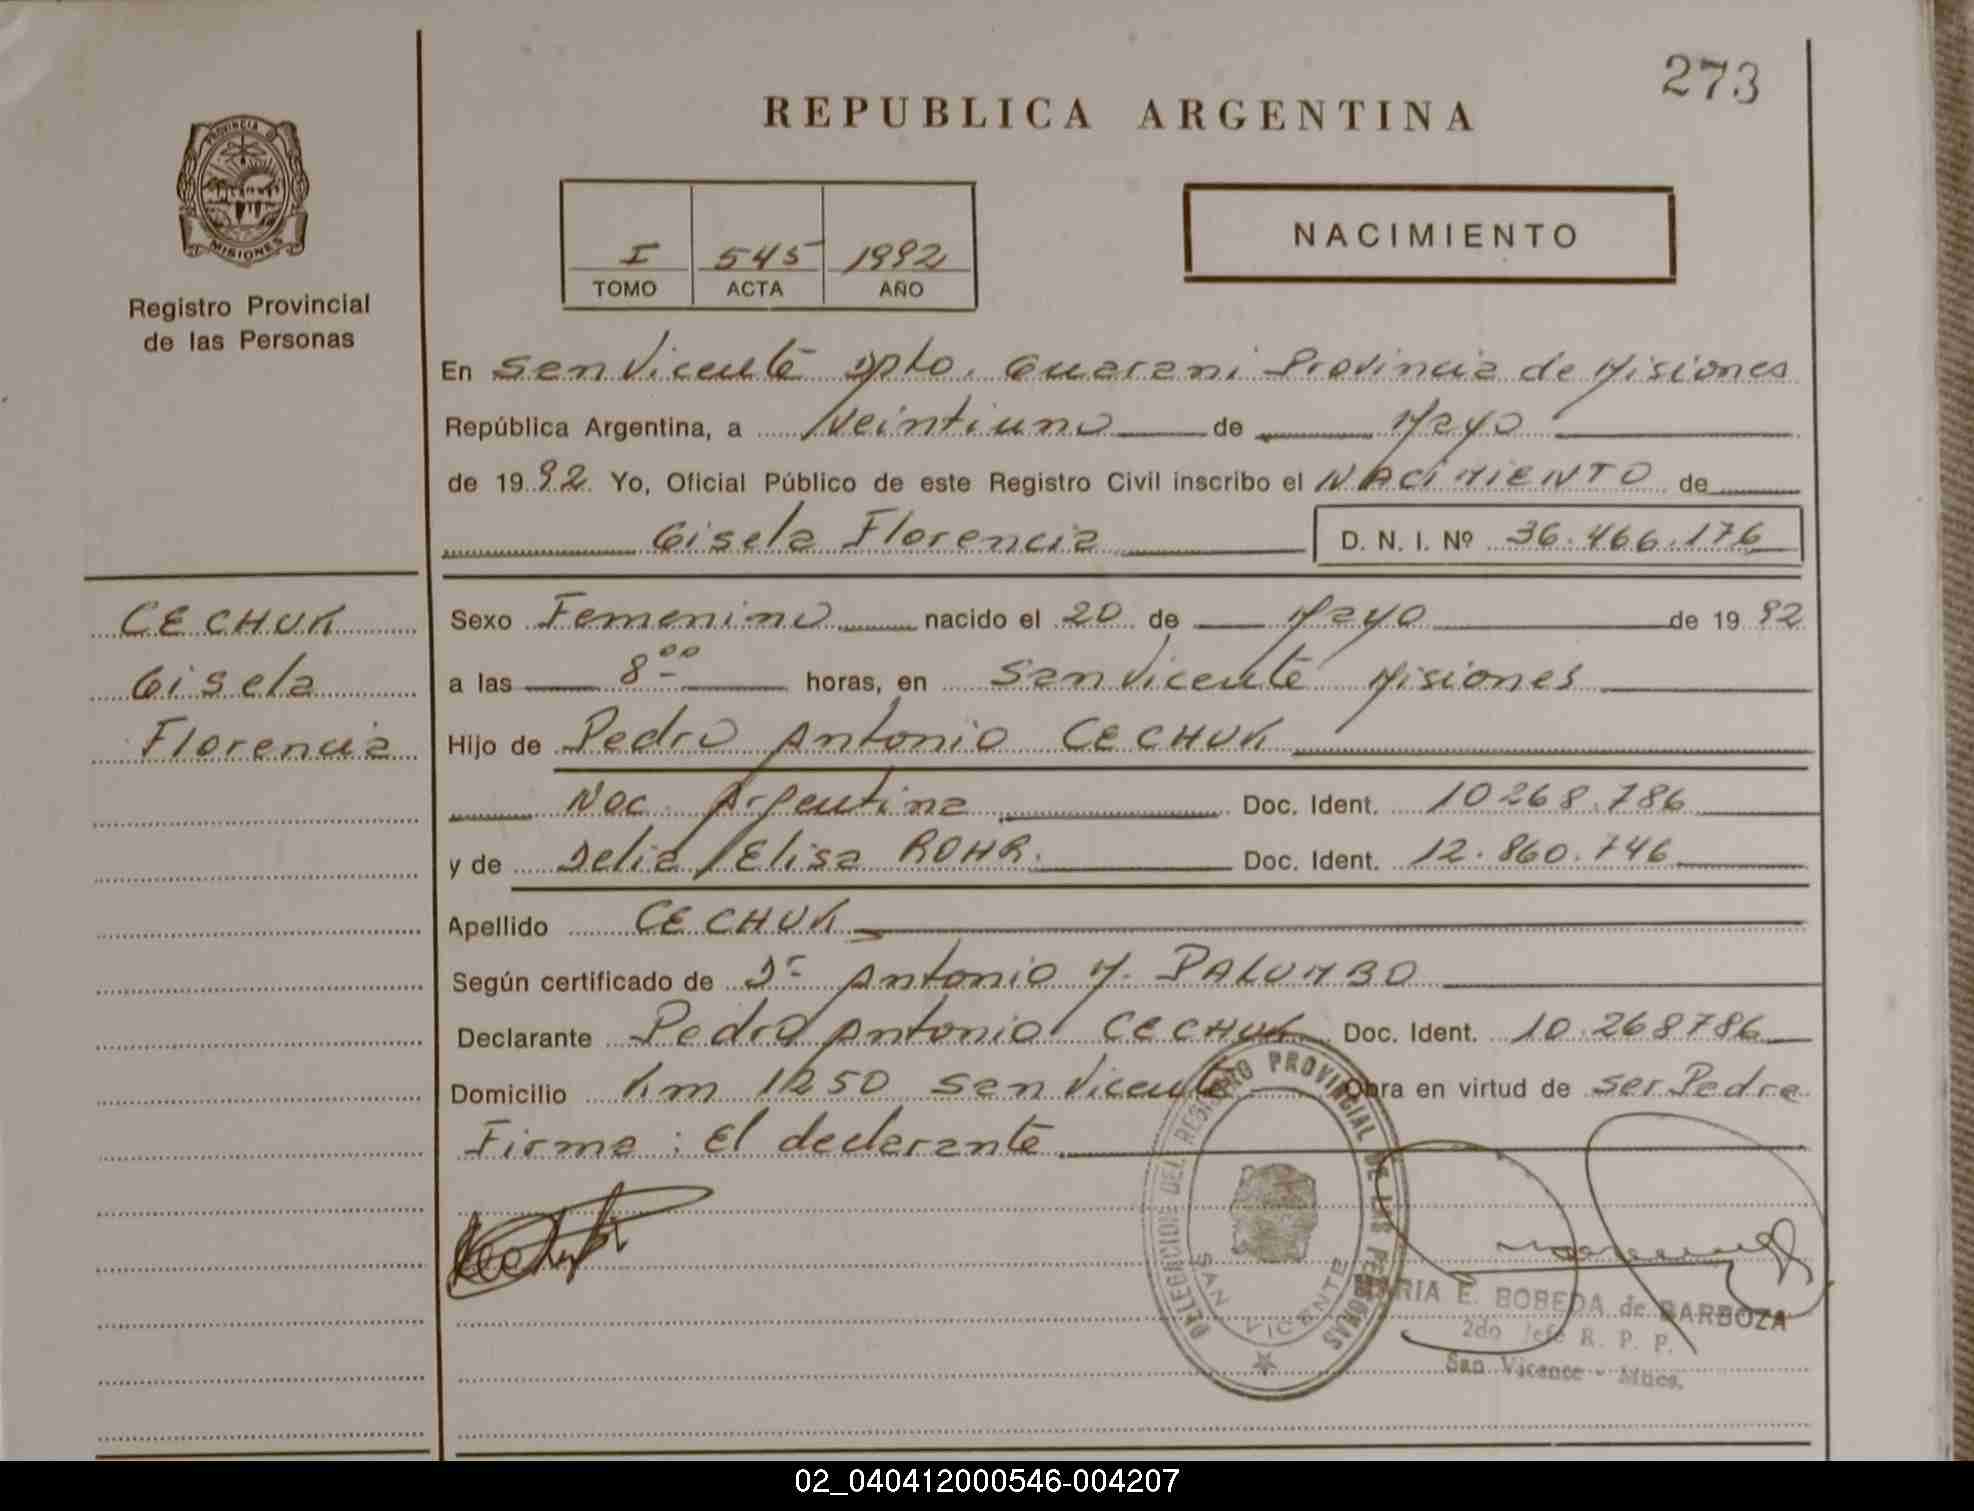 273
REPUBLICA ARGENTINA
PROVINCIA D
MISIONES
Registro Provincial
de las Personas
I 545 1992
TOMO ACTA AÑO
NACIMIENTO
En San Vicente Dpto. Guarani Provincia de Misiones
República Argentina, a Veintiuno de Mayo
de 1992 Yo, Oficial Público de este Registro Civil inscribo el NACIMIENTO de
Gisela Florencia D. N. I. Nº 36.466.176
CECHUK
Gisela
Florencia
Sexo Femenino nacido el 20 de Mayo de 1992
a las 8 00 horas, en San Vicente Misiones
Hijo de Pedro Antonio CECHUK
Nac. Argentina Doc. Ident. 10268.786
y de Delia Elisa ROHR. Doc. Ident. 12.860.746
Apellido CECHUK
Según certificado de Dr Antonio M. PALUMBO
Declarante Pedro Antonio CECHUK Doc. Ident. 10.268786
Domicilio Km 1250 San Vicente Obra en virtud de ser Padre
Firma: El declarante
DELEGACION DEL REGISTRO PROVINCIAL DE LAS PERSONAS
SAN VICENTE
MARIA E. BOBEDA de BARBOZA
2do Jefe R. P. P.
San Vicente - Mnes.
02_040412000546-004207